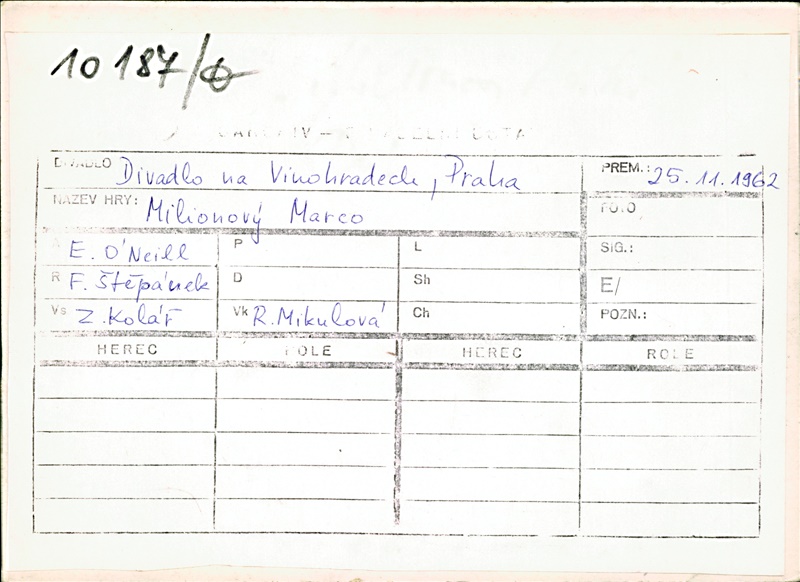 10 187/
DIVADLO Divadlo na Vinohradech, Praha PREM.: 25.11.1962
NÁZEV HRY: Milionový Marco FOTO
A E. O'Neill P L SIG.:
R F. Štěpánek D Sh E/
Vs Z. Kolář Vk R. Mikulová Ch POZN.:
HEREC ROLE HEREC ROLE